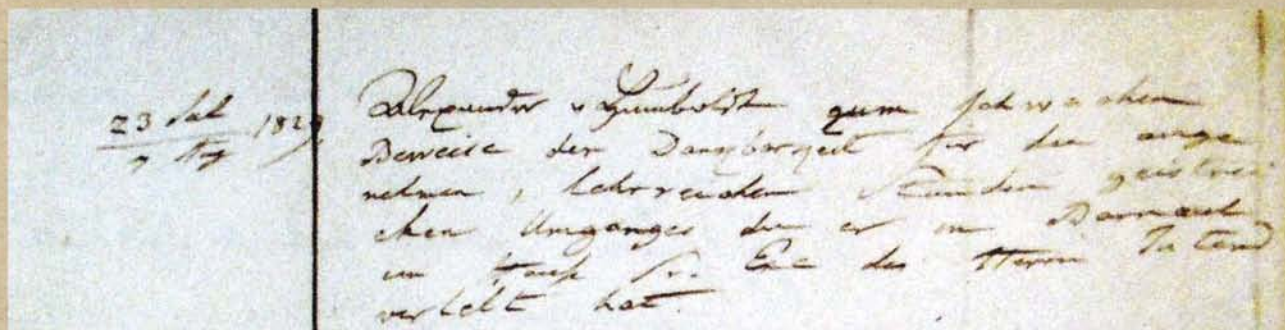 23 Jul 1829 Alexander v Humboldt zum schwachen
Beweise der Dankbarkeit für die ange
nehmen, lehrreichen Stunden geistrei
chen Umganges die er in Barnaul
im Hause des Herrn
verlebt hat.